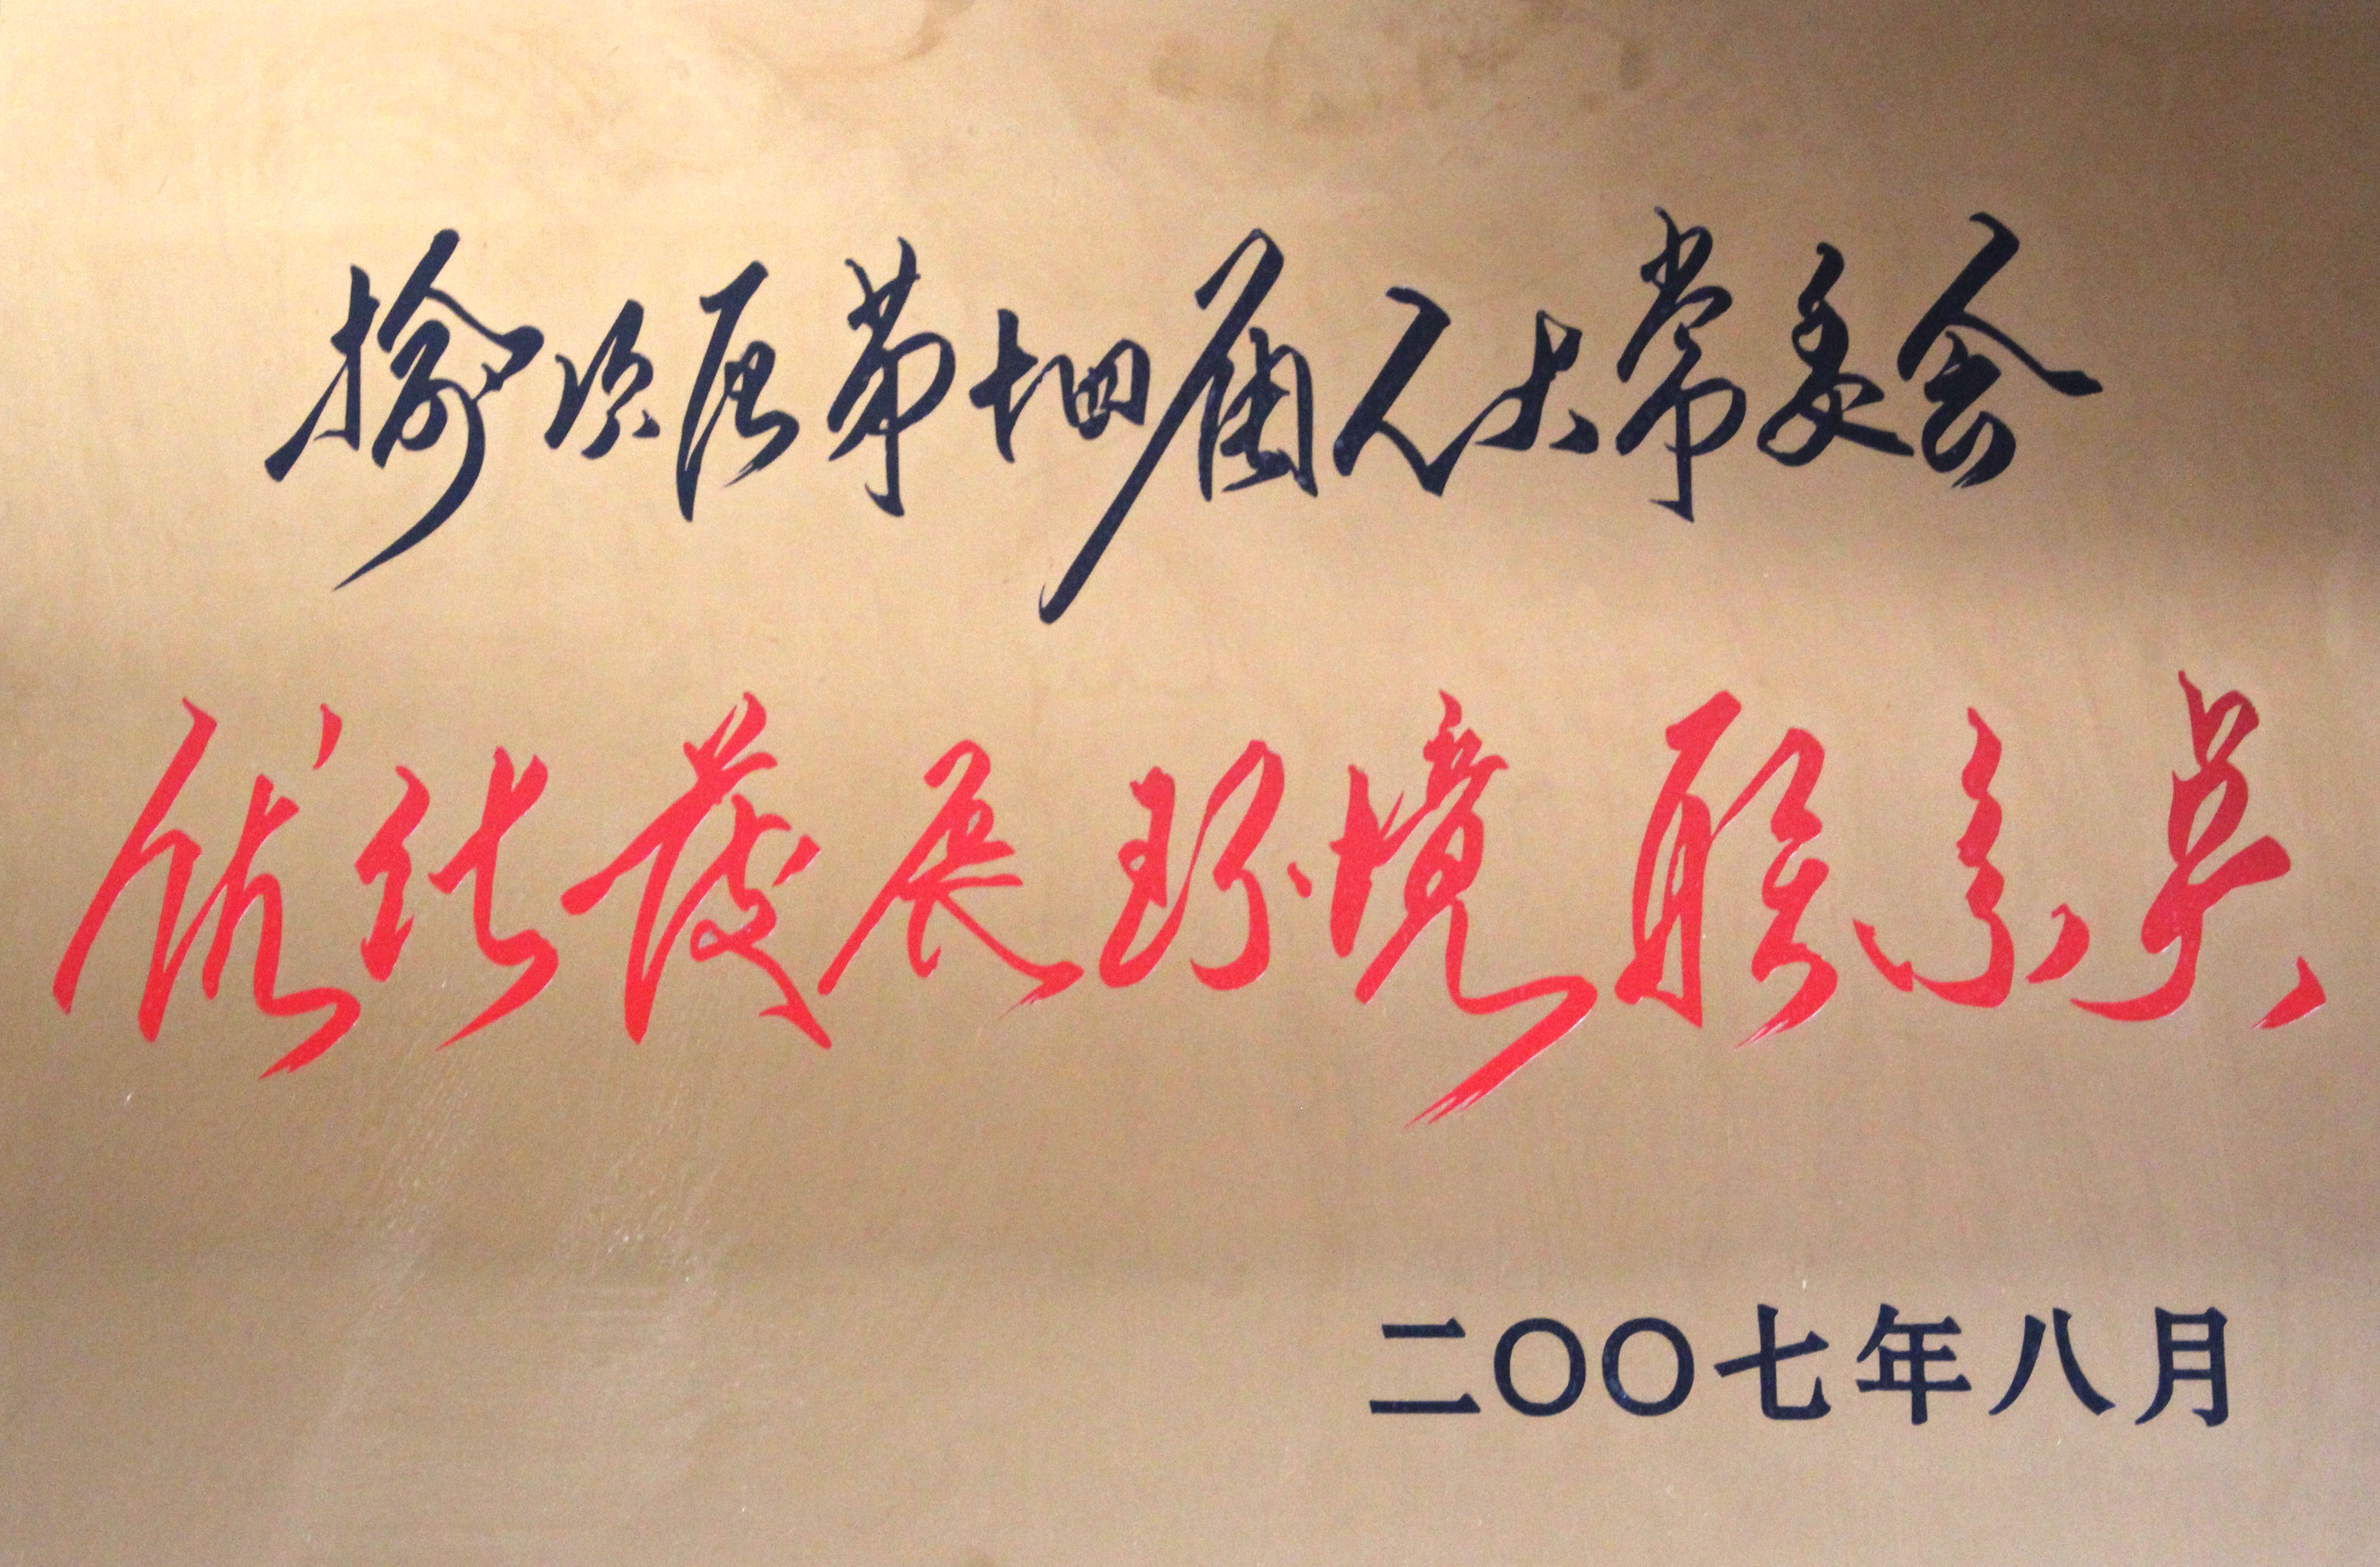 榆次区第十四届人大常委会
优化发展环境联系员
二〇〇七年八月